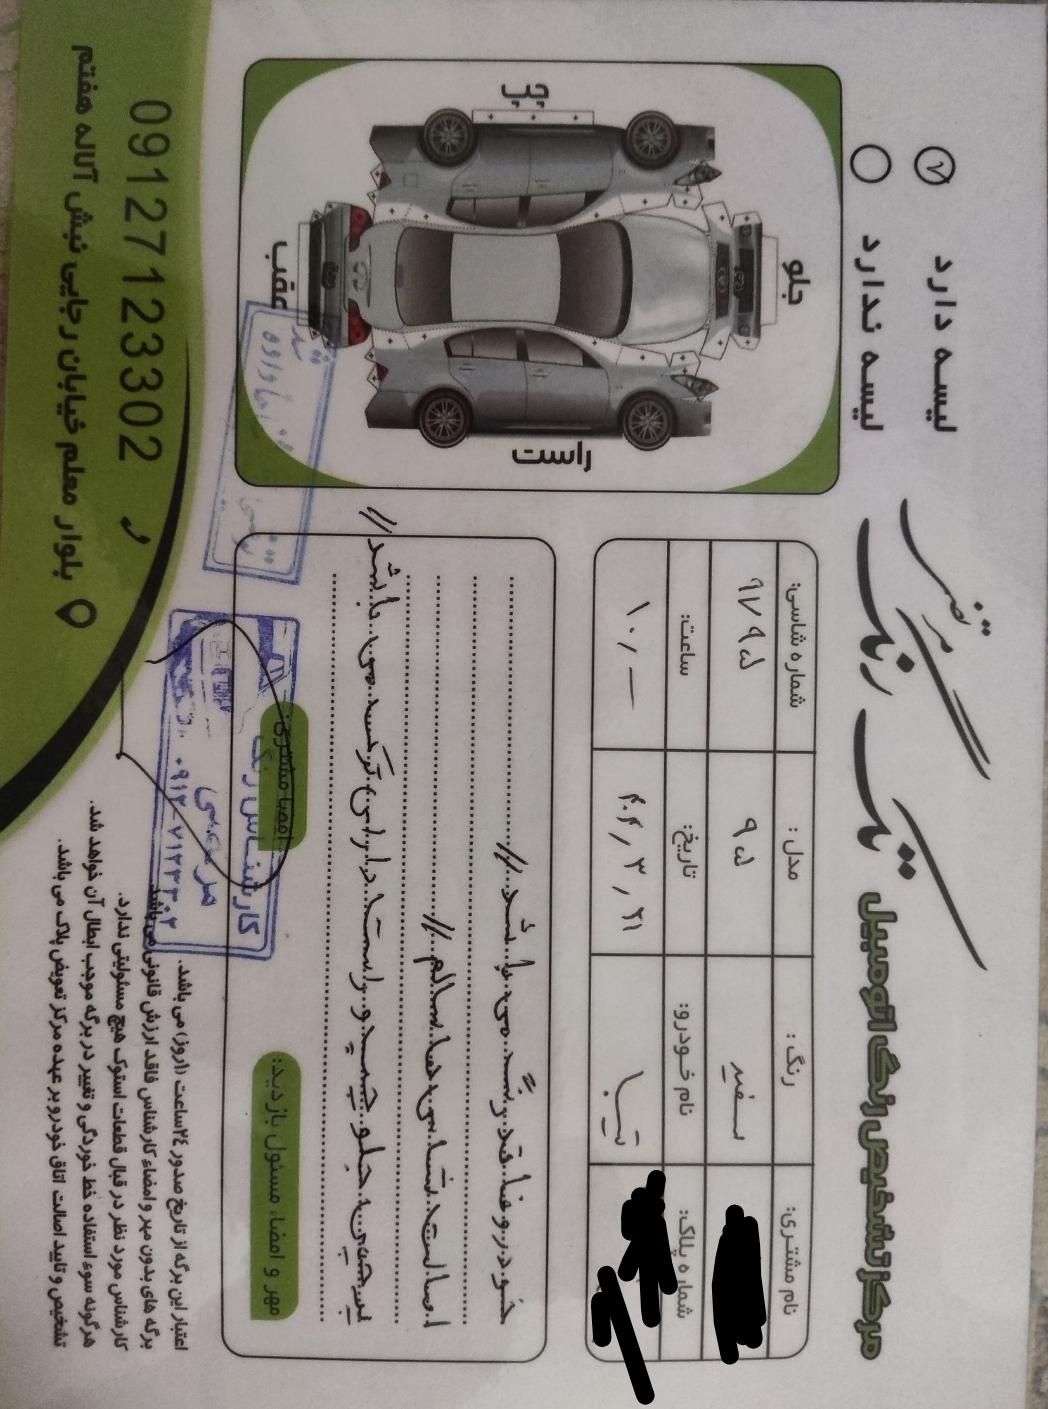 مرکز تشخیص رنگ اتومبیل
تک رنگ
لیسه دارد
لیسه ندارد
جلو
چپ
راست
عقب
نام مشتری:
رنگ: سفید
مدل: ۹۵
شماره شاسی: ۹۷۹۵
شماره پلاک:
نام خودرو: تیبا
تاریخ: ۰۴,۳,۲۱
ساعت: ۱۰,—
خودرو فاقد رنگ می باشد //
اصالت شاسی ها سالم //
سینی جلو چپ و راست دارای ترکید می باشد //
مهر و امضاء مسئول بازدید:
امضا مشتری:
کارشناس رنگ
۰۹۱۲-۷۱۲۳۳۰۲
اعتبار این برگه از تاریخ صدور ۲۴ساعت (۱روز) می باشد.
برگه های بدون مهر و امضاء کارشناس فاقد ارزش قانونی می باشد
کارشناس مورد نظر در قبال قطعات استوک هیچ مسئولیتی ندارد.
هرگونه سوء استفاده خط خوردگی و تغییر در برگه موجب ابطال آن خواهد شد.
تشخیص و تایید اصالت اتاق خودرو بر عهده مرکز تعویض پلاک می باشد.
09127123302
بلوار معلم خیابان رجایی نبش آلاله هفتم